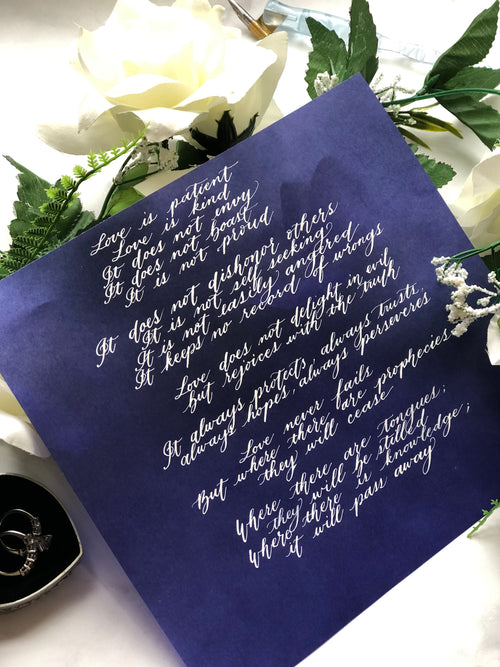 Love is patient
Love is kind
It does not envy
It does not boast
It is not proud
It does not dishonor others
It is not self seeking
It is not easily angered
It keeps no record of wrongs
Love does not delight in evil
but rejoices with the truth
It always protects, always trusts,
always hopes, always perseveres
Love never fails
But where there are prophecies
they will cease
Where there are tongues;
they will be stilled
Where there is knowledge;
it will pass away